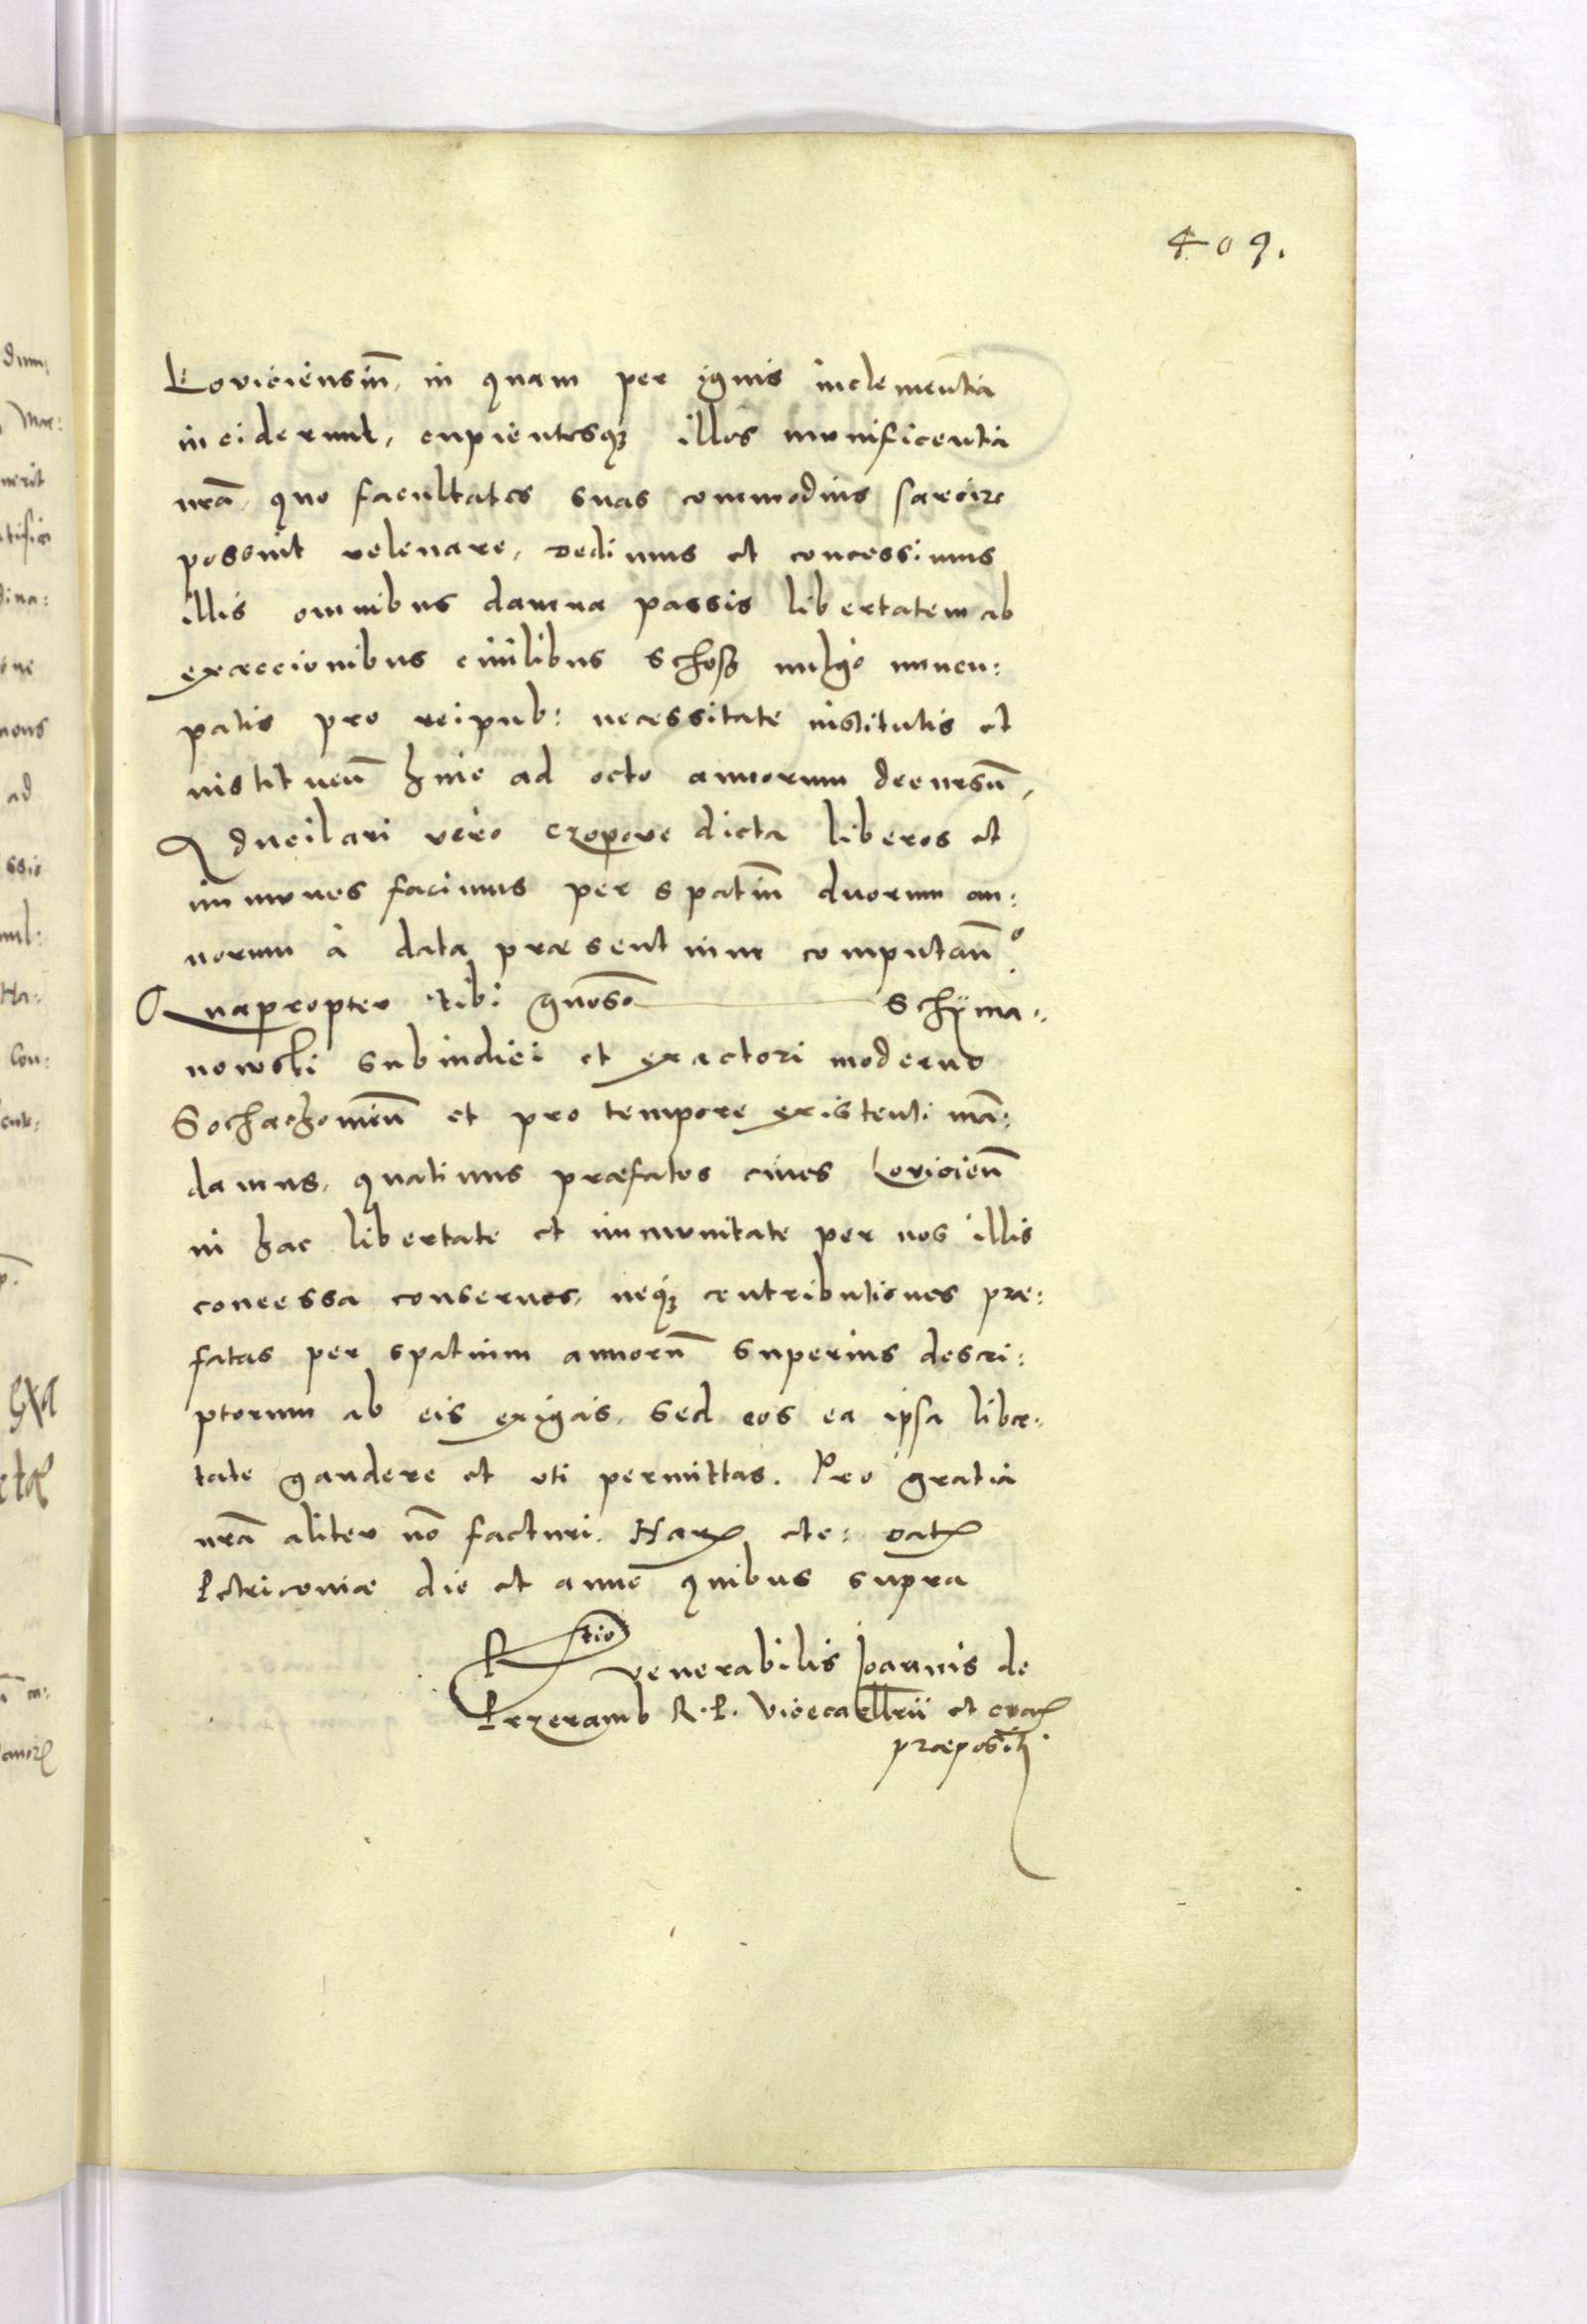 409.
Loviciensiu͂, in quam per ignis inclementia
inciderunt, cupientesq₃ illos munificentia
nr̃a, quo facultates suas commodius sarcire
possint relevare, dedimus et concessimus
illis omnibus damna passis libertatem ab
exaccionibus civilibus Schosz vulgo nuncu:
patis pro reipub: necessitate institutis et
instituen͂ hinc ad octo annorum decursu͂,
A ducilari vero czopove dicta liberos et
immunes facimus per spatiu͂ duorum an:
norum à data præsentium computan͂.
Quapropter tibi gnoso Schÿma:
nowski subiudici et exactori moderno
Sochaczovien͂ et pro tempore existenti ma͂:
damus, quatinus præfatos cives Lovicien͂
in hac libertate et immunitate per nos illis
concessa conserves, neq₃ contributiones præ:
fatas per spatium annoru͂ superius descri:
ptorum ab eis exigais, sed eos ea ipsa liber:
tate gaudere et uti permittas. Pro gratia
nr̃a aliter no͂ facturi. Harꝝ etc: Datꝝ
Petricoviæ die et anno quibus supra
Rtio venerabilis Joannis de
Przeramb R. P. Vicecancellrii et crac
præpositi.